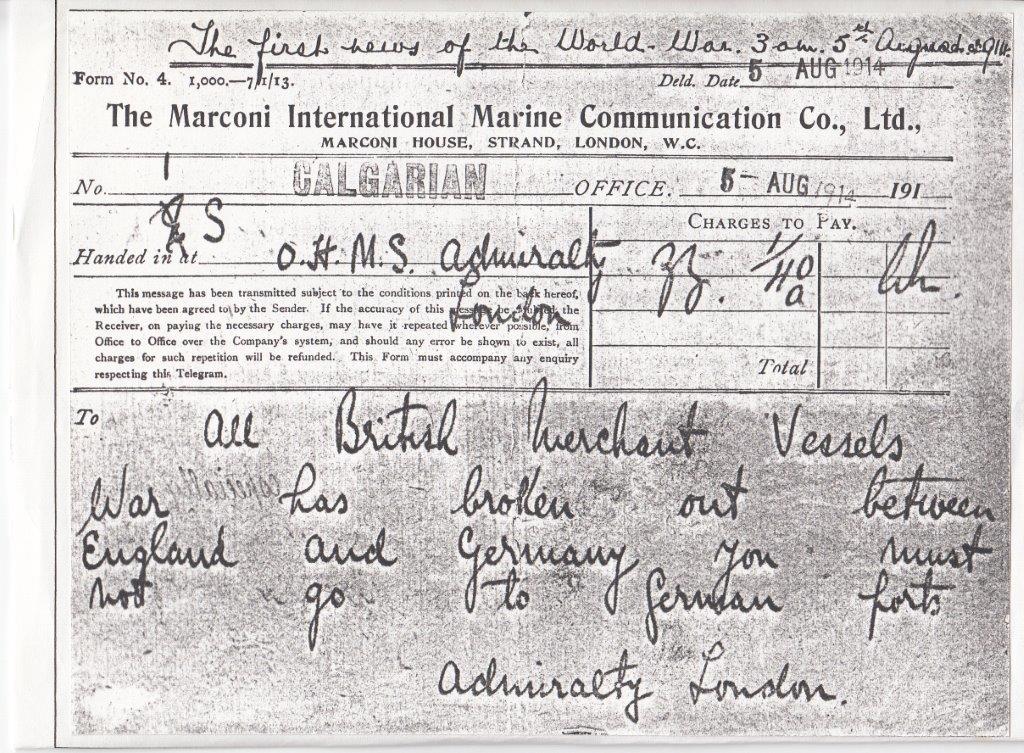 The first news of the World-War. 3 am. 5th August 1914.
Form No. 4. 1,000.—7/1/13.
Deld. Date 5 AUG 1914
The Marconi International Marine Communication Co., Ltd.,
MARCONI HOUSE, STRAND, LONDON, W.C.
No. 1 CALGARIAN OFFICE. 5- AUG 1914 191
S
CHARGES TO PAY.
Handed in at O.H.M.S. Admiralty
London
This message has been transmitted subject to the conditions printed on the back hereof,
which have been agreed to by the Sender. If the accuracy of this message be doubted the
Receiver, on paying the necessary charges, may have it repeated wherever possible, from
Office to Office over the Company's system, and should any error be shown to exist, all
charges for such repetition will be refunded. This Form must accompany any enquiry
respecting this Telegram.
Total
To All British Merchant Vessels
War has broken out between
England and Germany you must
not go to German ports
Admiralty London.